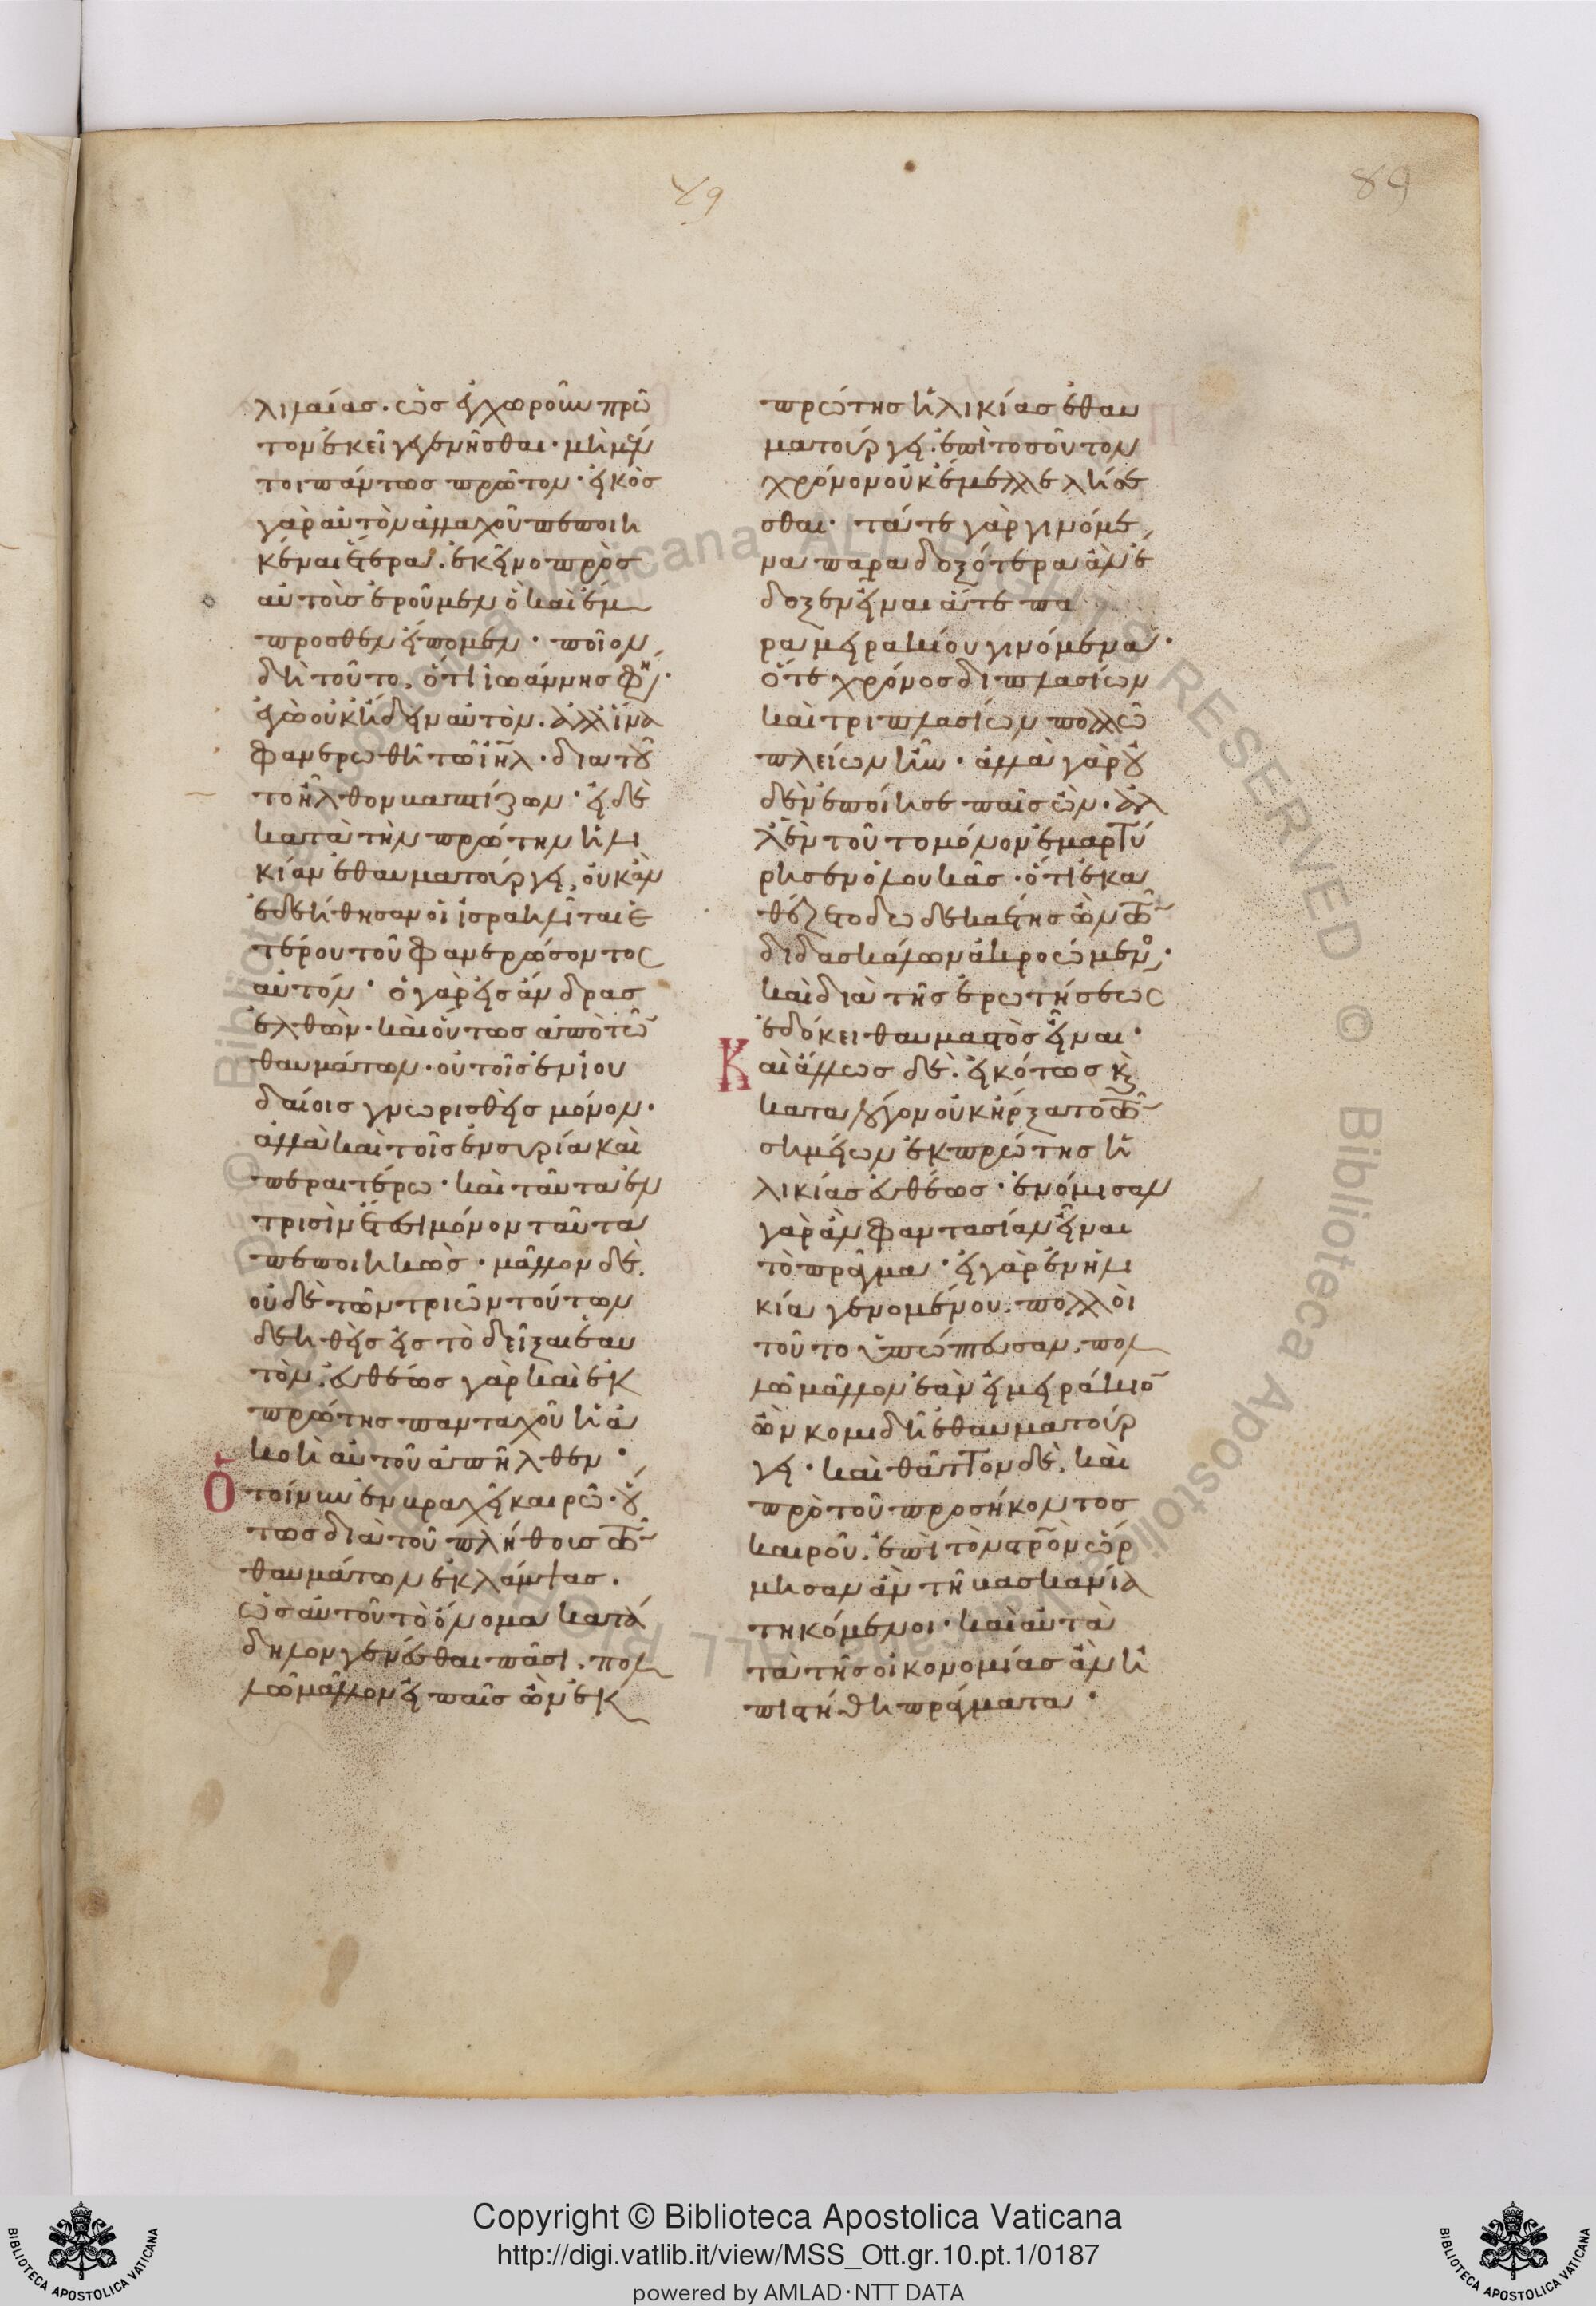 49
89
λιλαίας. ὡς ἐχώρουν πρῶ
τον ἐκεῖ γεγενῆσθαι· μὴ μέν
τοι πάντως πρῶτον· εἰκὸς
γὰρ αὐτὸν ἀλλαχοῦ πεποιη
κέναι ἕτερα. ἐκεῖνο πρὸς
αὐτοὺς ἐροῦμεν ὃ καὶ ἔμ
προσθεν εἴπομεν· ποῖον
δὴ τοῦτο, ὅτι ἰωάννης φη·
ἐγὼ οὐκ ᾔδειν αὐτὸν. ἀλλ' ἵνα
φανερωθῇ τῶ ιηλ· διὰ τοῦ
το ἦλθον βαπτίζων· εἰ δὲ
κατὰ τὴν πρώτην ἡλι
κίαν ἐθαυματούργει, οὐκ ἂν
ἐδεήθησαν οἱ ἰσραηλῖται ἑ
τέρου τοῦ φανερώσοντος
αὐτόν· ὁ γὰρ εἰς ἄνδρας
ἐλθὼν. καὶ οὕτως ἀπὸ τῶν
θαυμάτων. οὐ τοῖς ἐν ἰου
δαίοις γνωρισθεὶς μόνον·
ἀλλὰ καὶ τοῖς ἐν συρία καὶ
περαιτέρω· καὶ ταῦτα ἐν
τρισὶν ἔτεσι μόνον ταῦτα
πεποιηκὼς· μᾶλλον δὲ.
οὐδὲ τῶν τριῶν τούτων
δεηθεὶς εἰς τὸ δεῖξαι ἑαυ
τὸν. εὐθέως γὰρ καὶ ἐκ
πρώτης πανταχοῦ ἡ ἀ
κοὴ αὐτοῦ ἀπῆλθεν·
Ὁ τοίνυν ἐν βραχεῖ καιρῶ· οὕ
τως διὰ τοῦ πλήθους τῶν
θαυμάτων ἐκλάμψας.
ὡς αὐτοῦ τὸ ὄνομα κατά
δηλον γενέσθαι πᾶσι. πολ
λῶ μᾶλλον εἰ παῖς ὢν ἐκ
πρώτης ἡλικίας ἐθαυ
ματούργει. ἐπὶ τοσοῦτον
χρόνον οὐκ ἔμελλε λήσε
σθαι· τά τε γὰρ γινόμε
να παραδοξότερα ἂν ἔ
δοξεν εἶναι ἅτε πα
ρὰ μειρακίου γινόμενα·
ὅ τε χρόνος διπλασίων
καὶ τριπλασίων πολλῶ
πλείων ἦν· ἀλλὰ γὰρ οὐ
δὲν ἐποίησε παῖς ὢν. ἀλ
λ' ἓν τοῦτο μόνον ἐμαρτύ
ρησεν ὁ λουκᾶς· ὅτι ἐκα
θέζετο δωδεκαέτης ὢν τῶν
διδασκάλων ἀκροώμενος·
καὶ διὰ τῆς ἐρωτήσεως
ἐδόκει θαυμαστὸς εἶναι·
Καὶ ἄλλως δὲ. εἰκότως καὶ
κατὰ λόγον οὐκ ἤρξατο τῶν
σημείων ἐκ πρώτης ἡ
λικίας εὐθέως· ἐνόμισαν
γὰρ ἂν φαντασίαν εἶναι
τὸ πρᾶγμα· εἰ γὰρ ἐν ἡλι
κία γενομένου. πολλοὶ
τοῦτο ὑπώπτευσαν. πολ
λῶ μᾶλλον ἐὰν εἰ μειράκιον
ὢν κομιδῆ ἐθαυματούρ
γει· καὶ θᾶττον δὲ, καὶ
πρὸ τοῦ προσήκοντος
καιροῦ. ἐπὶ τὸν στρον ὥρ
μησαν ἂν τῆ βασκανία
τηκόμενοι· καὶ αὐτὰ
τὰ τῆς οἰκονομίας ἂν ἠ
πιστήθη πράγματα·
Copyright © Biblioteca Apostolica Vaticana
http://digi.vatlib.it/view/MSS_Ott.gr.10.pt.1/0187
powered by AMLAD·NTT DATA